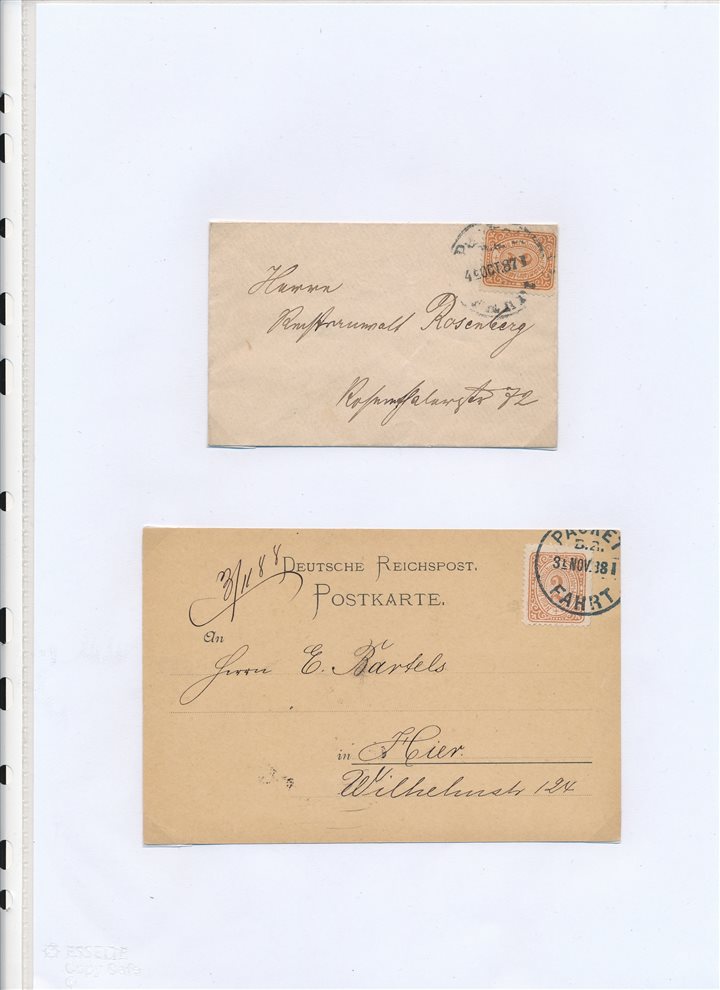 45 OCT. 87 I
Herrn
Rechtsanwalt Rosenberg
Rosenthalerstr 72
3/11 88
DEUTSCHE REICHSPOST.
POSTKARTE.
PACKET
B.2.
3 L NOV. 88 I
FAHRT
An
Herrn E. Bartels
in Hier.
Wilhelmstr 124
ESSELTE
Copy Safe